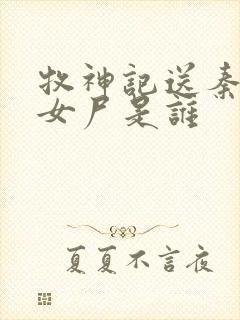 牧神記送秦
女尸是誰
夏夏不言夜